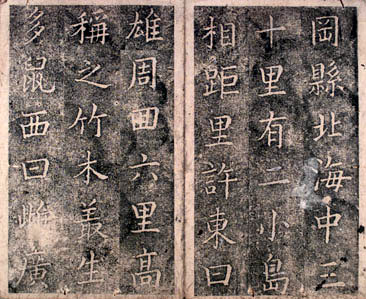 岡縣北海中三
十里有二小島
相距里許東曰
雄周囬六里髙
稱之竹木叢生
多鼠西曰雌廣